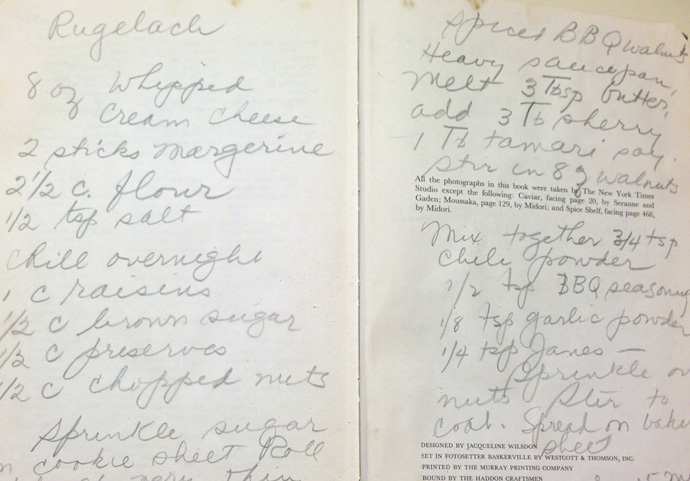 Rugelach
8 oz Whipped
Cream Cheese
2 sticks Margerine
2 1/2 c. flour
1/2 tsp salt
chill overnight
1 c raisins
1/2 c brown sugar
1/2 c preserves
1/2 c chopped nuts
Sprinkle sugar
n cookie sheet Roll
very thin
Spiced BBQ walnuts
Heavy saucepan,
Melt 3 Tbsp butter,
add 3 Tb sherry
1 Tb tamari soy.
Stir in 8 oz walnuts
All the photographs in this book were taken by The New York Times
Studio except the following: Caviar, facing page 20, by Seranne and
Gaden; Moussaka, page 129, by Midori; and Spice Shelf, facing page 468,
by Midori.
Mix together 3/4 tsp
chili powder
1/2 tsp BBQ seasoning
1/8 tsp garlic powder
1/4 tsp Janes —
Sprinkle on
nuts Stir to
coat. Spread on baking
sheet
DESIGNED BY JACQUELINE WILSDON
SET IN FOTOSETTER BASKERVILLE BY WESTCOTT & THOMSON, INC.
PRINTED BY THE MURRAY PRINTING COMPANY
BOUND BY THE HADDON CRAFTSMEN